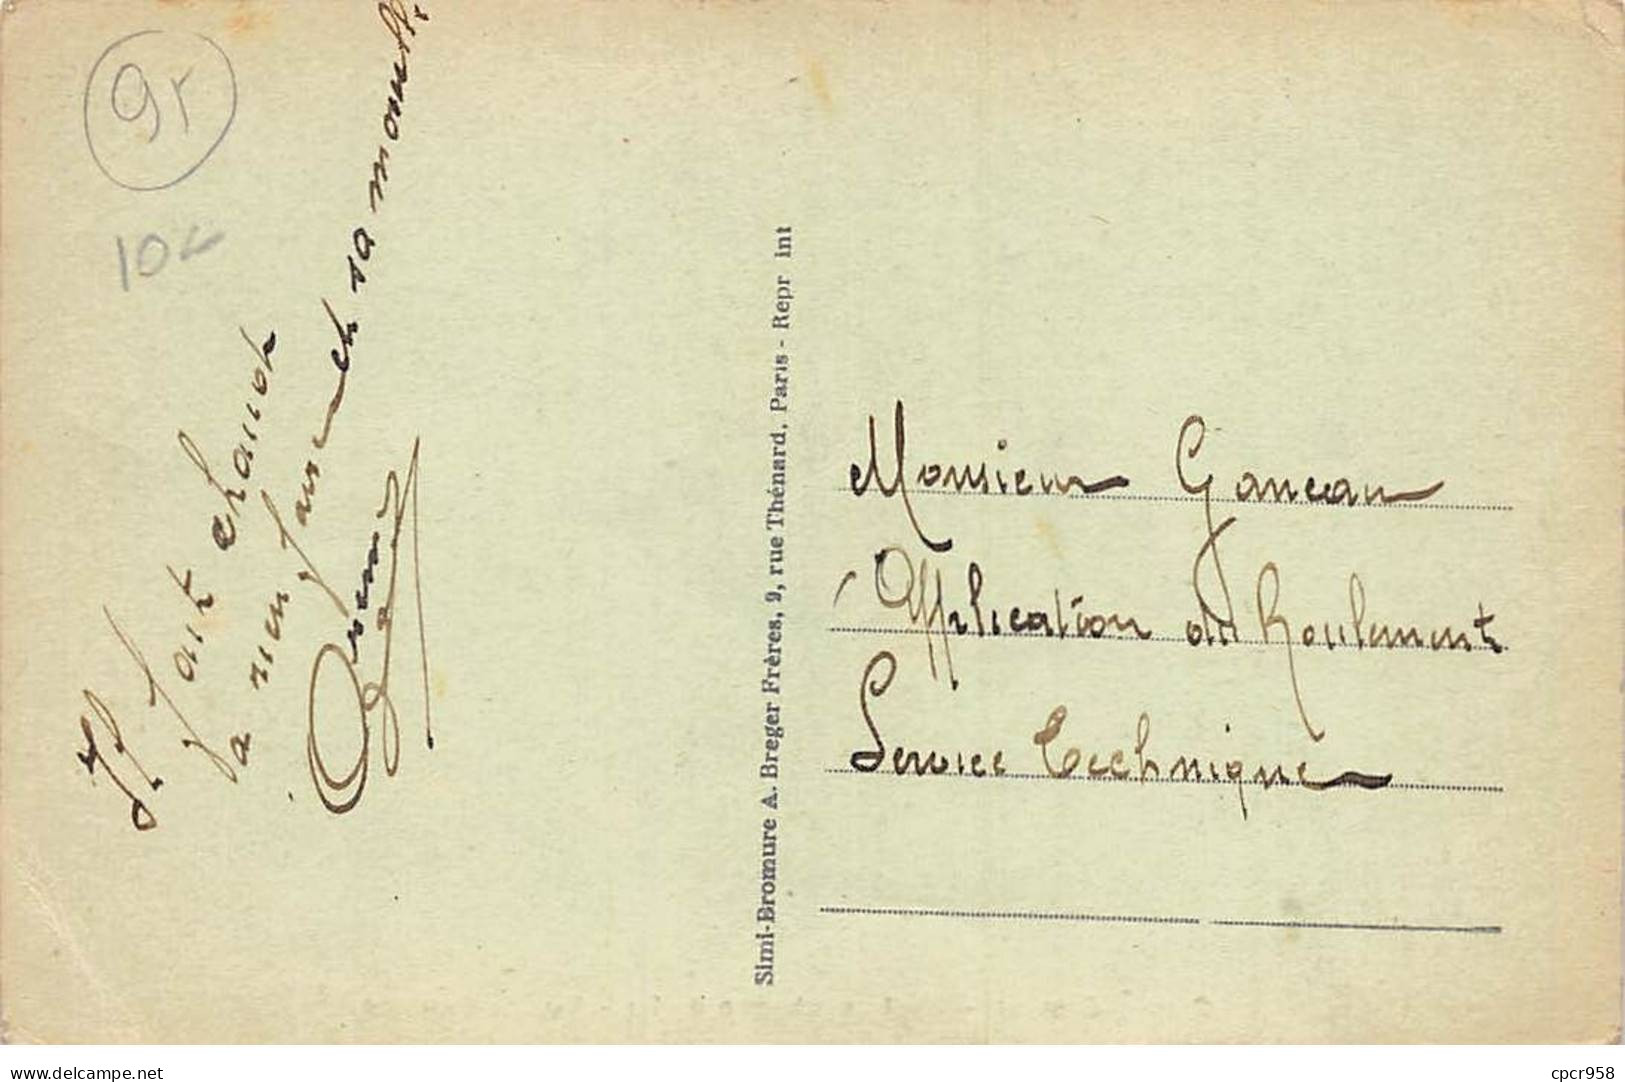 95
10-
Il fait chaud
a rien faire et ta moule
Simi-Bromure A. Breger Frères, 9, rue Thénard, Paris - Repr int
Monsieur Ganeau
Application du Roulement
Service Technique
delcampe.net
cpcr958